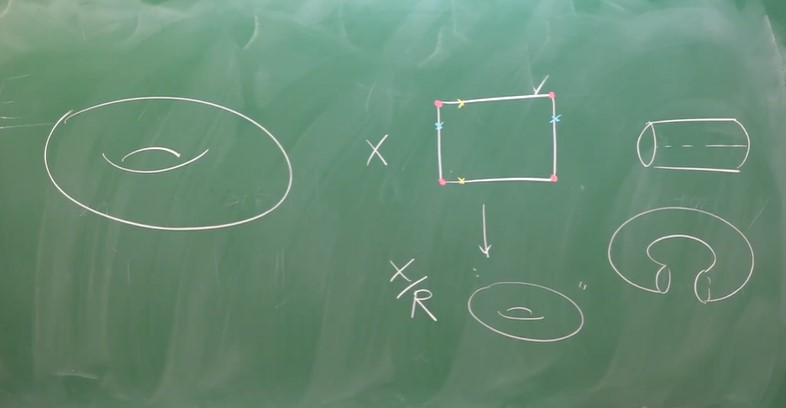 X
X/R